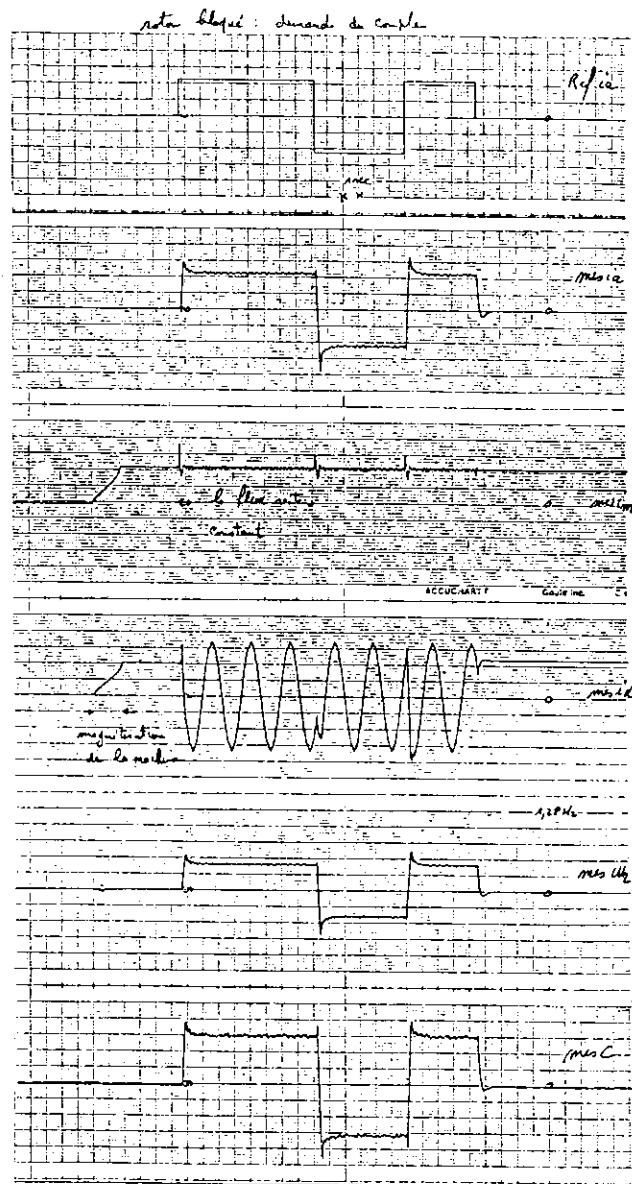 rotor bloqué : demande de couple
Ref ia
1 sec
mes ia
mes im
le flux reste
constant
ACCUCHART
Gould Inc
mes id
magnétisation
de la machine
1,28 Hz
mes
mes C